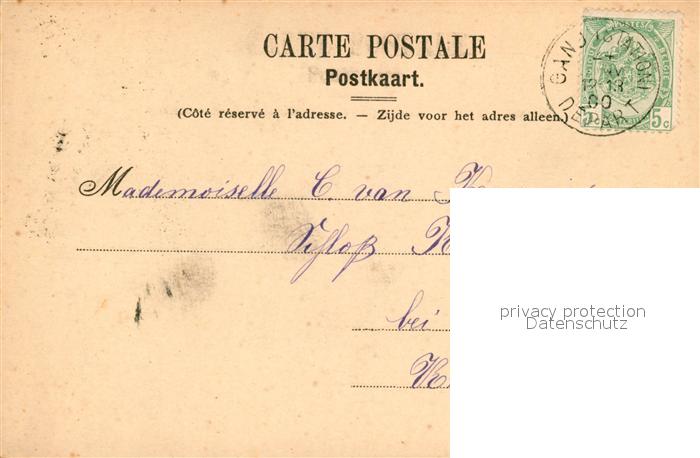 CARTE POSTALE
Postkaart.
(Côté réservé à l'adresse. — Zijde voor het adres alleen.)
POSTES
5c
GAND (STATION)
13
00
DEPART
Mademoiselle C. van
Schloß
bei
privacy protection
Datenschutz